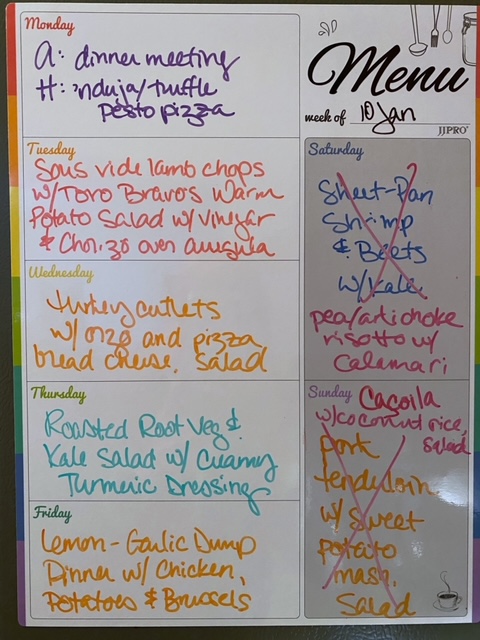 Monday
A: dinner meeting
H: 'nduja/truffle
Pesto pizza
Menu
week of 10 Jan
JJPRO®
Tuesday
Sous vide lamb chops
w/Toro Bravo's Warm
Potato Salad w/vinegar
& Chorizo over arugula
Wednesday
turkey cutlets
w/ orzo and pizza
bread cheese, salad
Thursday
Roasted Root Veg &
Kale Salad w/ Creamy
Turmeric Dressing
Friday
Lemon-Garlic Dump
Dinner w/ Chicken,
Potatoes & Brussels
Saturday
Sheet-Pan
Shrimp
& Beets
w/Kale
pea/artichoke
risotto w/
Calamari
Sunday Cacoila
w/coconut rice,
salad
pork
tenderloin
w/ sweet
potato
mash,
Salad